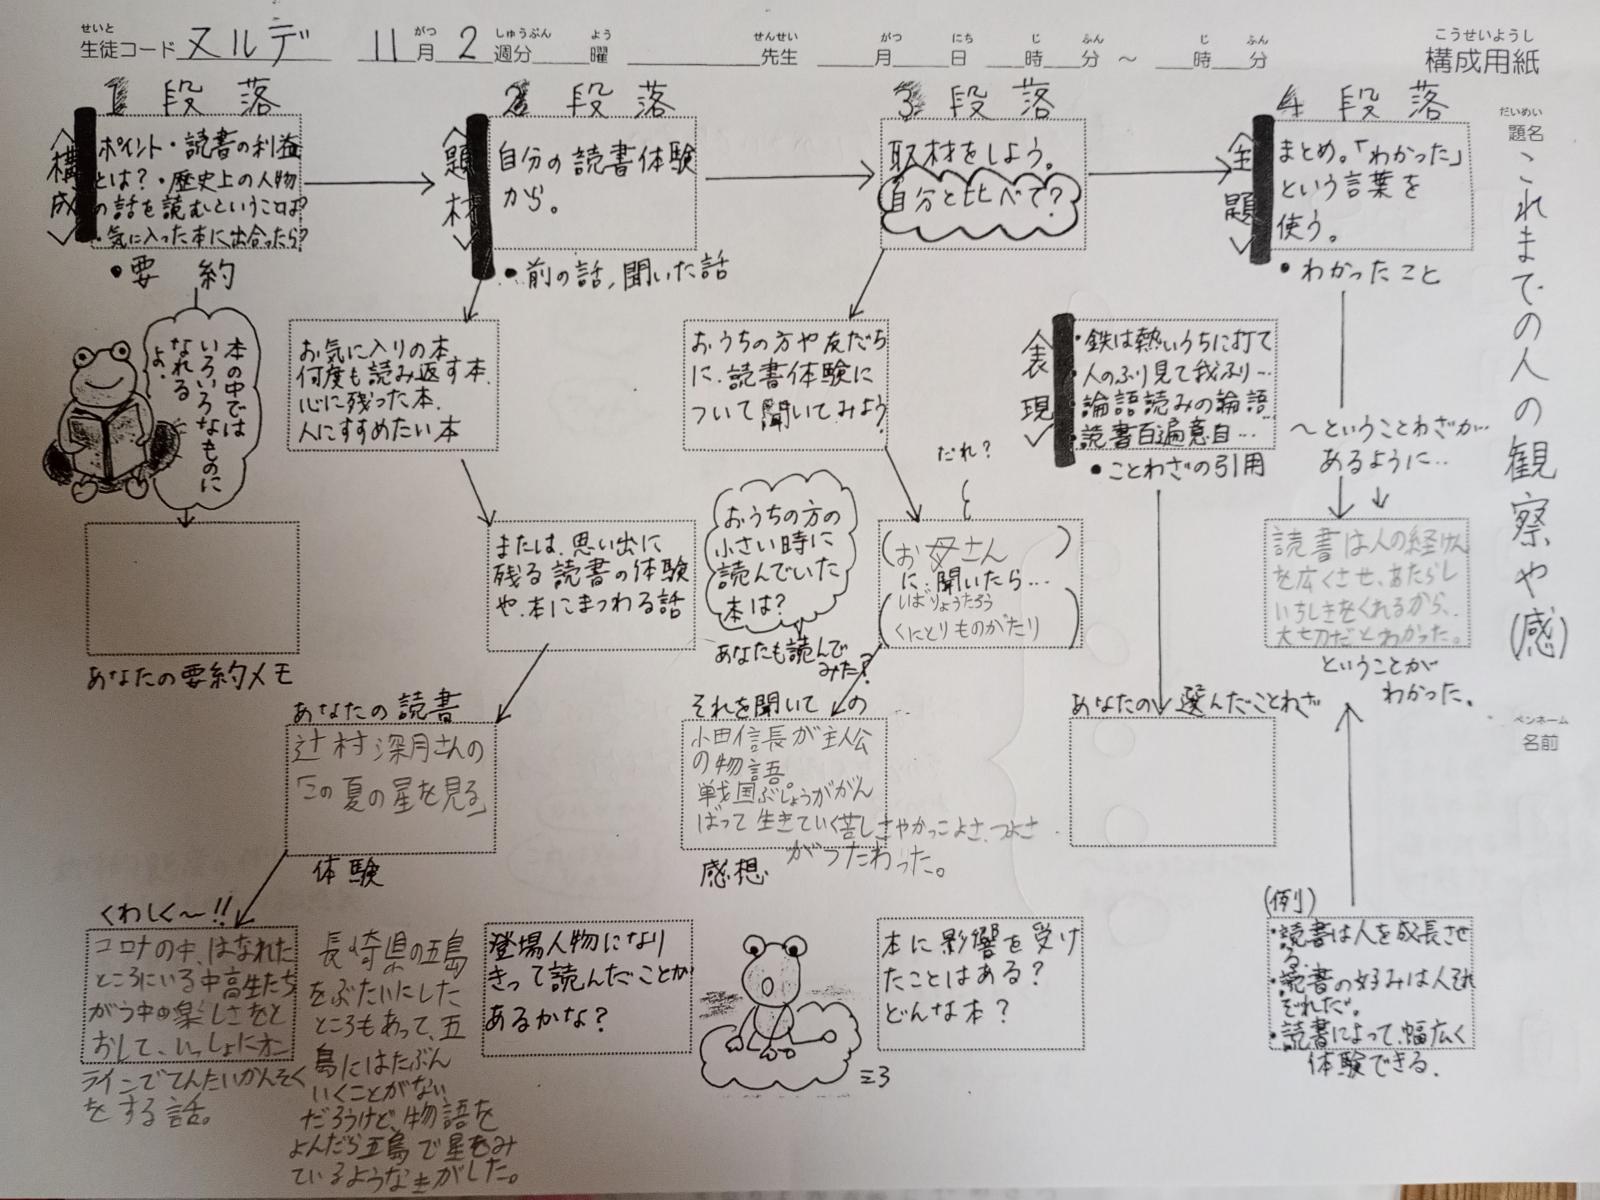 せいと がつ しゅうぶん よう せんせい がつ にち じ ふん じ ふん こうせいようし
生徒コード ヌルデ 11月2週分 曜 先生 月 日 時 分 ～ 時 分 構成用紙
だいめい
題名
これまでの人の観察や(感)
ペンネーム
名前
1段落
<構成>
ポイント・読書の利益
とは?・歴史上の人物
の話を読むということは?
・気に入った本に出合ったら?
・要約
本の中では
いろいろなものに
なれる
よ.
あなたの要約メモ
2段落
<題材>
自分の読書体験
から。
・前の話,聞いた話
お気に入りの本
何度も読み返す本.
心に残った本.
人にすすめたい本
または、思い出に
残る読書の体験
や、本にまつわる話
あなたの読書
辻村深月さんの
「この夏の星を見る」
体験
くわしく～!!
コロナの中、はなれた
ところにいる中高生たち
がう中の楽しさをと
おして、いっしょにオン
ラインでてんたいかんそく
をする話。
長崎県の五島
をぶたいにした
ところもあって、五
島にはたぶん
いくことがない
だろうけど、物語を
よんだら五島で星をみ
ているような気がした。
登場人物になり
きって読んだことが
あるかな?
3段落
取材をしよう。
自分と比べて?
おうちの方や友だち
に、読書体験に
ついて聞いてみよう
おうちの方の
小さい時に
読んでいた
本は?
あなたも読んで
みた?
だれ?
(お母さん)
に、聞いたら…
(いばりょうたろう
くにとりものがたり)
それを聞いての
小田信長が主人公
の物語
戦国ぶしょうががん
ばって生きていく苦しさやかっこよさ、つよさ
がつたわった。
感想
本に影響を受け
たことはある?
どんな本?
4段落
<主題>
まとめ。「わかった」
という言葉を
使う。
・わかったこと
<表現>
・鉄は熱いうちに打て
・人のふり見て我ふり…
・論語読みの論語
・読書百遍意自…
・ことわざの引用
あなたの選んだことわざ
～ということわざが…
あるように…
読書は人の経けん
を広くさせ、あたらし
いちしきをくれるから、
大切だとわかった。
ということが
わかった。
(例)
・読書は人を成長させ
る.
・読書の好みは人それ
ぞれだ。
・読書によって、幅広く
体験できる.